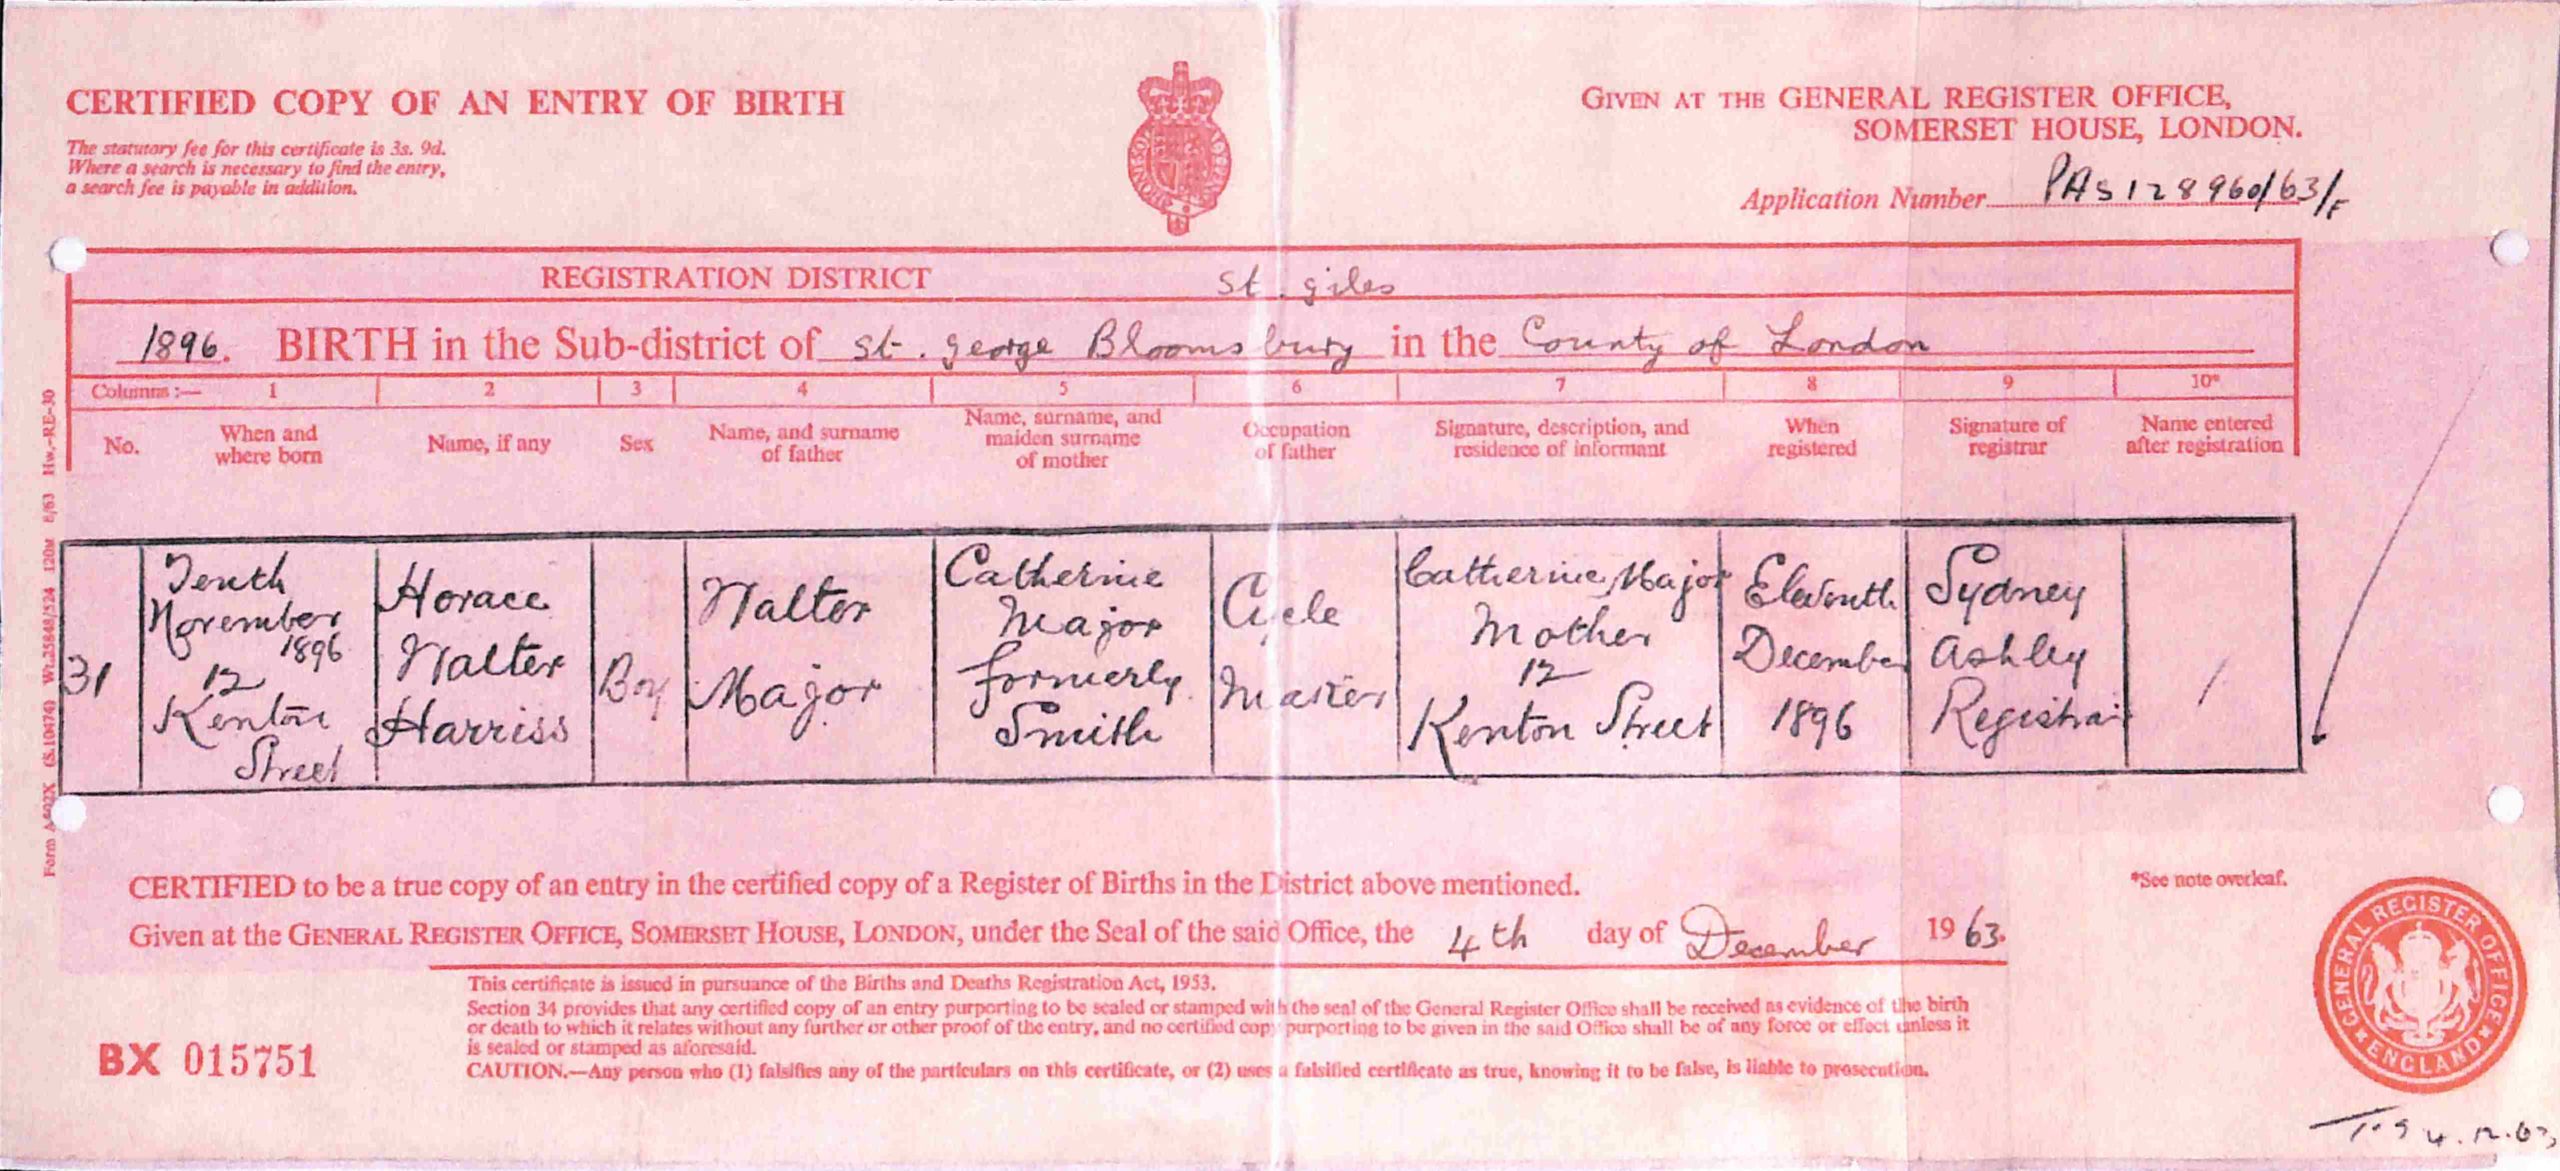 CERTIFIED COPY OF AN ENTRY OF BIRTH
The statutory fee for this certificate is 3s. 9d.
Where a search is necessary to find the entry,
a search fee is payable in addition.
GIVEN AT THE GENERAL REGISTER OFFICE,
SOMERSET HOUSE, LONDON.
Application Number PAS 128960/63/F
REGISTRATION DISTRICT St. Giles
1896. BIRTH in the Sub-district of St. George Bloomsbury in the County of London
Columns:— 1 2 3 4 5 6 7 8 9 10*
No.
When and
where born
Name, if any
Sex
Name, and surname
of father
Name, surname, and
maiden surname
of mother
Occupation
of father
Signature, description, and
residence of informant
When
registered
Signature of
registrar
Name entered
after registration
31
Tenth
November
1896
12
Kenton
Street
Horace
Walter
Harriss
Boy
Walter
Major
Catherine
Major
formerly
Smith
Cycle
Maker
Catherine Major
Mother
12
Kenton Street
Eleventh
December
1896
Sydney
Ashley
Registrar
/
CERTIFIED to be a true copy of an entry in the certified copy of a Register of Births in the District above mentioned.
Given at the GENERAL REGISTER OFFICE, SOMERSET HOUSE, LONDON, under the Seal of the said Office, the 4th day of December 1963.
*See note overleaf.
This certificate is issued in pursuance of the Births and Deaths Registration Act, 1953.
Section 34 provides that any certified copy of an entry purporting to be sealed or stamped with the seal of the General Register Office shall be received as evidence of the birth
or death to which it relates without any further or other proof of the entry, and no certified copy purporting to be given in the said Office shall be of any force or effect unless it
is sealed or stamped as aforesaid.
CAUTION.—Any person who (1) falsifies any of the particulars on this certificate, or (2) uses a falsified certificate as true, knowing it to be false, is liable to prosecution.
BX 015751
GENERAL REGISTER OFFICE
ENGLAND
4.12.63
Form A502X (S.10474) Wt.25848/524 120M 8/63 Hw.-RE-30